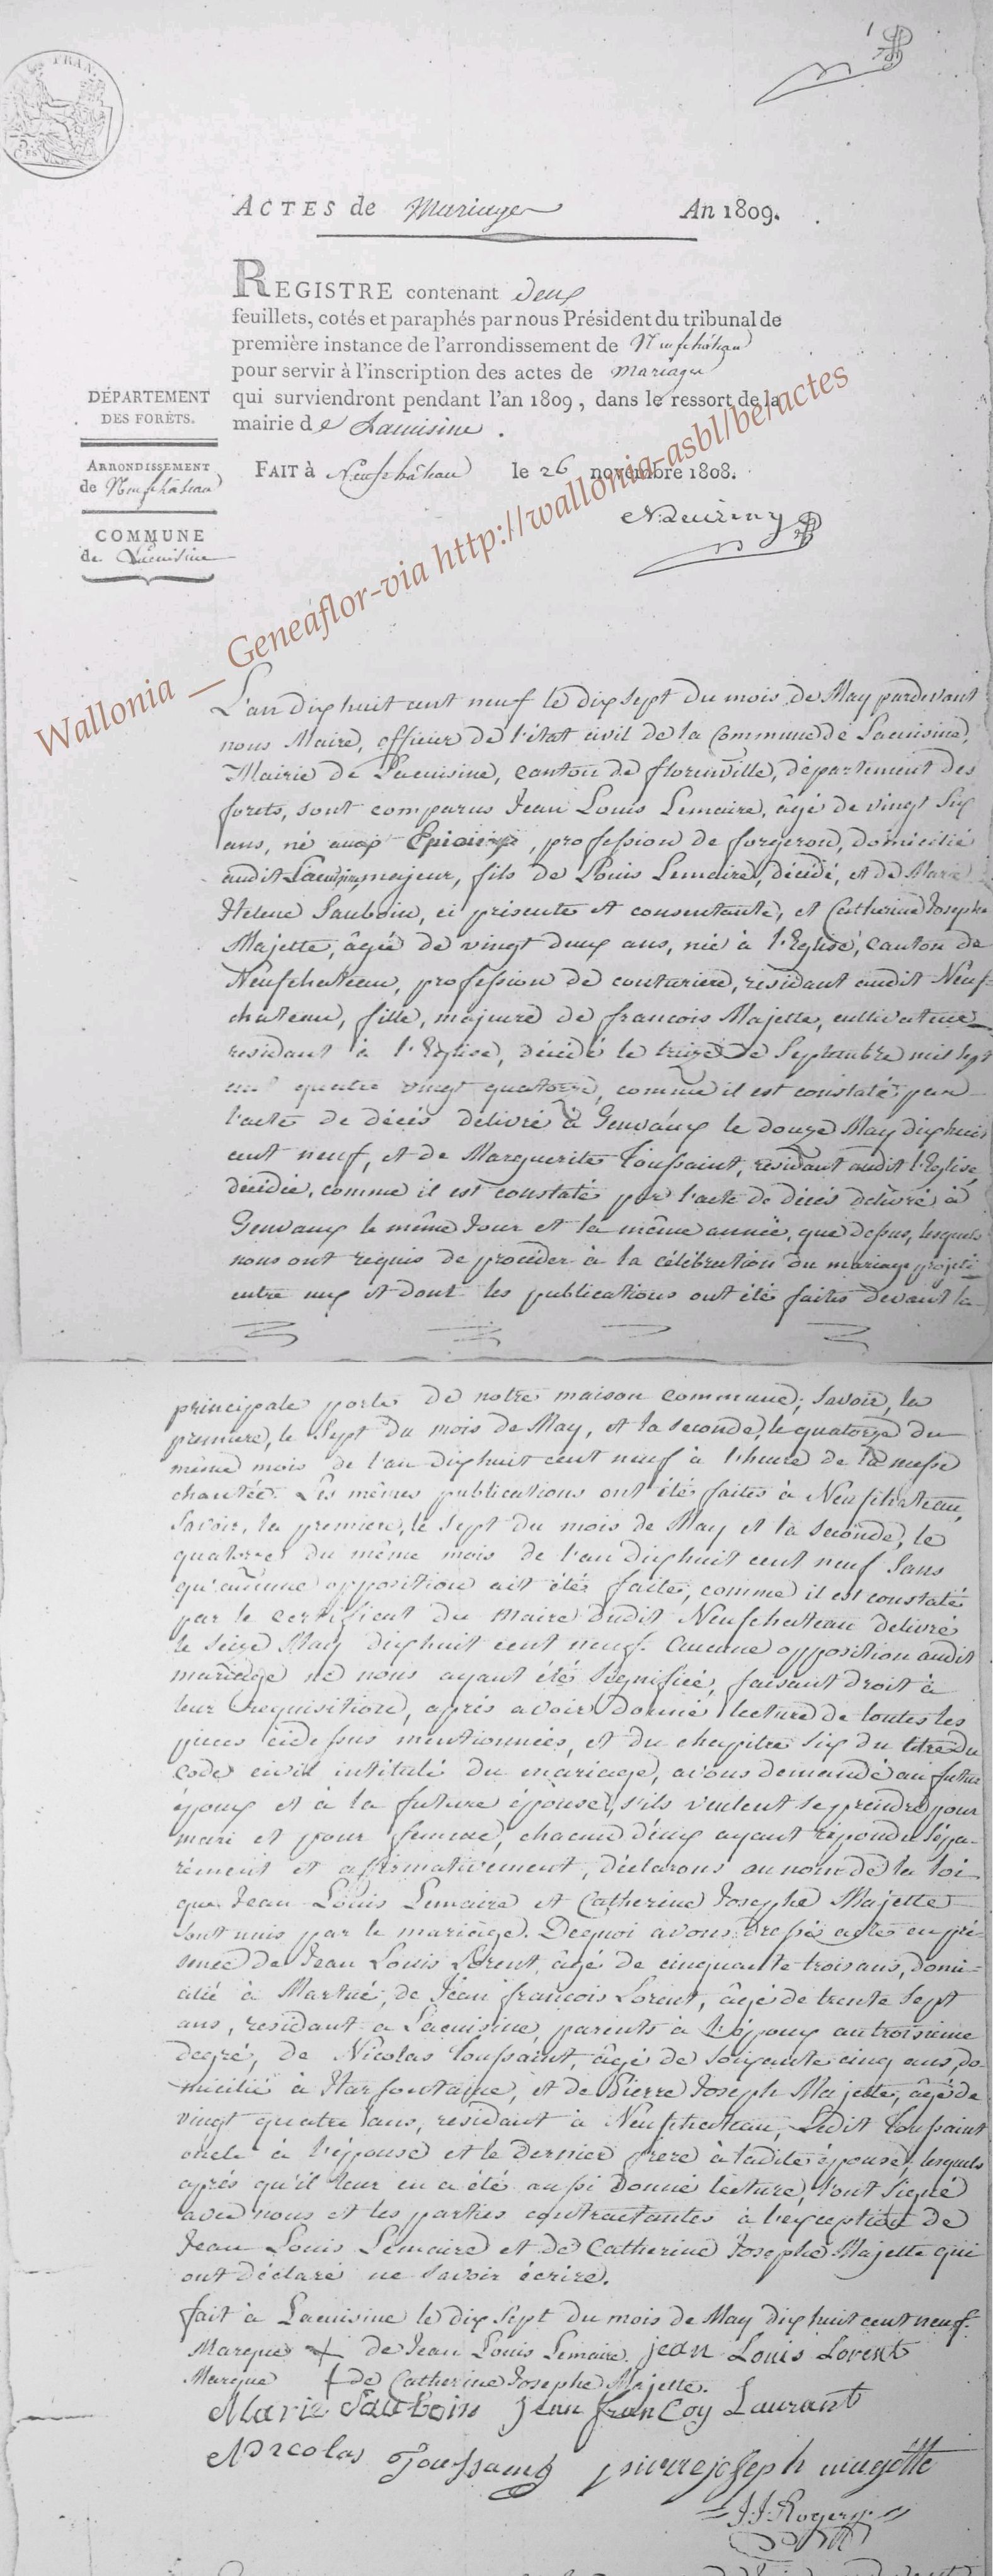 ACTES de Mariage An 1809.
REGISTRE contenant deux
feuillets, cotés et paraphés par nous Président du tribunal de
première instance de l'arrondissement de Neufchâteau
pour servir à l'inscription des actes de mariage
qui surviendront pendant l'an 1809, dans le ressort de la
mairie de Lacuisine.
DÉPARTEMENT
DES FORÊTS.
ARRONDISSEMENT
de Neufchâteau
COMMUNE
de Lacuisine
FAIT à Neufchâteau le 26 novembre 1808.
Wallonia _ Geneaflor-via http://wallonia-asbl/be/actes
L'an dix huit cent neuf le dix sept du mois de May pardevant
nous Maire, officier de l'état civil de la Commune de Lacuisine,
Mairie de Lacuisine, canton de florenville, département des
forets, sont comparus Jean Louis Lemaire, âgé de vingt Six
ans, né aux Epioux, profession de forgeron, domicilié
audit Lacuisine, majeur, fils de Louis Lemaire, décédé, et de Marie
Helene Sauboin, ci présente et consentante, et Catherine Josephe
Majette, âgée de vingt deux ans, née à l'Eglise, canton de
Neufchateau, profession de couturiere, résidant audit Neuf=
chateau, fille, majeure de francois Majette, cultivateur
residant à l'Eglise, décédé le treize de Septembre mil sept
cent quatre vingt quatorze, comme il est constaté par
l'acte de décès délivré à Genvaux le douze May dix huit
cent neuf, et de Marguerite Toussaint, residant audit l'Eglise
décédée, comme il est constaté par l'acte de décès délivré à
Genvaux le même Jour et la même année, que dessus, lesquels
nous ont requis de procéder à la célébration du mariage projeté
entre eux et dont les publications ont été faites devant la
principale porte de notre maison commune; Savoir, la
premiere, le Sept du mois de May, et la seconde, le quatorze du
même mois de l'an dix huit cent neuf à l'heure de la messe
chantée. Les mêmes publications ont été faites à Neufchateau,
Savoir, la premiere, le Sept du mois de May et la seconde, le
quatorze du même mois de l'an dix huit cent neuf Sans
qu'aucune opposition ait été faite, comme il est constaté
par le certificat du Maire dudit Neufchateau délivré
le Seize May dix huit cent neuf. Aucune opposition audit
mariage ne nous ayant été Signifiée, faisant droit à
leur requisition, après avoir donné lecture de toutes les
pieces cidessus mentionnées, et du chapitre Six du titre du
Code civil intitulé du mariage, avons demandé au futur
époux et à la future épouse, s'ils veulent se prendre pour
mari et pour femme, chacun d'eux ayant répondu Sépa-
rément et affirmativement, déclarons au nom de la loi
que Jean Louis Lemaire et Catherine Josephe Majette
Sont unis par le mariage. Dequoi avons dressé acte en pré-
sence de Jean Louis Lorent, âgé de cinquante trois ans, domi-
cilié à Martué, de Jean françois Lorent, âgé de trente Sept
ans, residant a Lacuisine, parents à l'époux au troisieme
degré, de Nicolas Toussaint, âgé de Soixante cinq ans, do-
micilié à Harfontaine, et de Pierre Joseph Majette, âgé de
vingt quatre ans, residant à Neufchateau, Ledit Toussaint
oncle à l'épouse et le Dernier frere à ladite épouse, lesquels
après qu'il leur en a été aussi donné lecture, l'ont Signé
avec nous et les parties contractantes à l'exception de
Jean Louis Lemaire et de Catherine Josephe Majette qui
ont déclaré ne Savoir écrire.
fait à Lacuisine le dix Sept du mois de May dix huit cent neuf.
Marque + de Jean Louis Lemaire. jean Louis Lorent
Marque + de Catherine Josephe Majette.
Marie Sauboin jean francoy Laurant
Nicolas Toussaing pierre joseph magette
J. J. Rogery